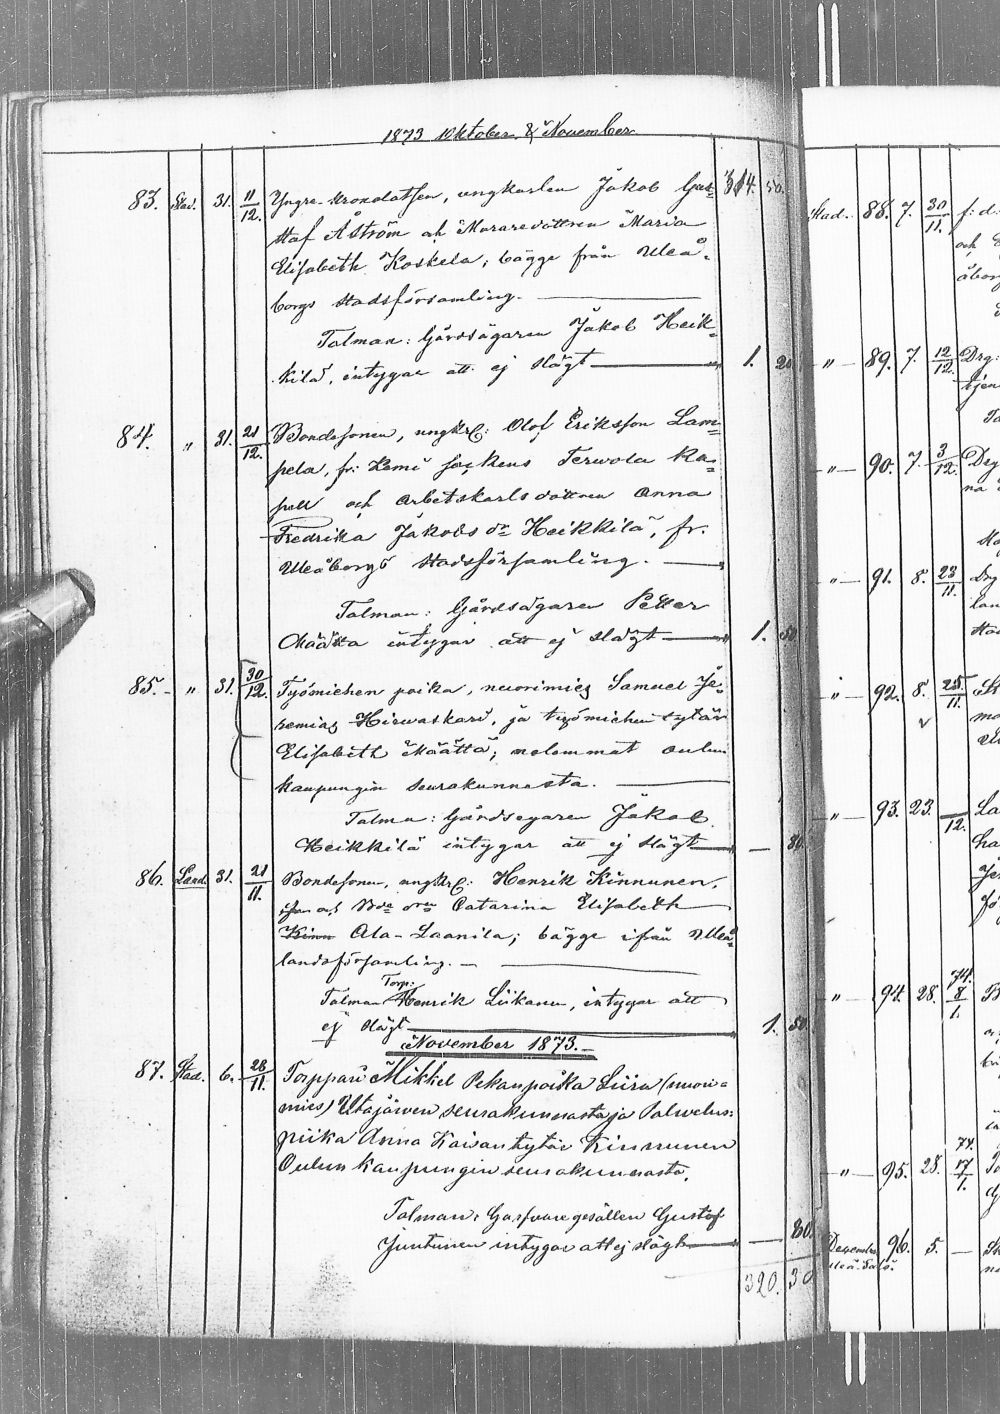 1873 Oktober & November
83. Stad. 31. 11/12. Yngre kronolotsen, ungkarlen Jakob Gus= 314. 50.
staf Åström och Muraredottren Maria
Elisabeth Koskela, bägge från Uleå=
borgs stadsförsamling.
Talman: Gårdsägaren Jakob Heik=
kilä, intygar att ej slägt 1. 20
84. " 31. 21/12. Bondesonen, ungkrl: Olof Eriksson Lam=
pela, fr: Kemi sockens Terwola Ka=
pell och arbetskarlsdottren Anna
Fredrika Jakobs dr Heikkilä, fr.
Uleåborgs stadsförsamling.
Talman: Gårdsägaren Petter
Määttä intygar att ej slägt 1. 50
85. " 31. 30/12. Työmiehen poika, nuorimies Samuel Je=
remias Hirwaskari, ja työmiehen tytär
Elisabeth Määttä; molemmat Oulun
kaupungin seurakunnasta.
Talma: Gårdsegaren Jakob
Heikkilä intygar att ej slägt — 80.
86. Land. 31. 21/11. Bondesonen, ungkrl: Henrik Kinnunen,
och Bde dren Catarina Elisabeth
Kinn Ala-Laanila; bägge ifrån Uleå
landsförsamling. —
Torp:
Talman Henrik Liikanen, intygar att
ej slägt 1. 50.
November 1873.—
87. Stad. 6. 28/11. Torppari Mikkel Pekanpoika Liiru (nuori=
mies) Utajärwen seurakunnasta ja Palwelus=
piika Anna Kaisantytär Kinnunen
Oulun kaupungin seurakunnasta.
Talman: Garfvaregesällen Gustof
Juntunen intygar att ej slägt — 80.
320. 30
Stad. 88. 7. 30/11. f: d:
och
åborg
" — 89. 7. 12/12. Drg:
tjen
" — 90. 7. 3/12. Drg
na
" — 91. 8. 23/11. Drg
lan
" — 92. 8. 25/11.
" — 93. 23. —/12. La
" — 94. 28. 74. 8/1. B
" — 95. 28. 74. 17/1.
December 96. 5. —